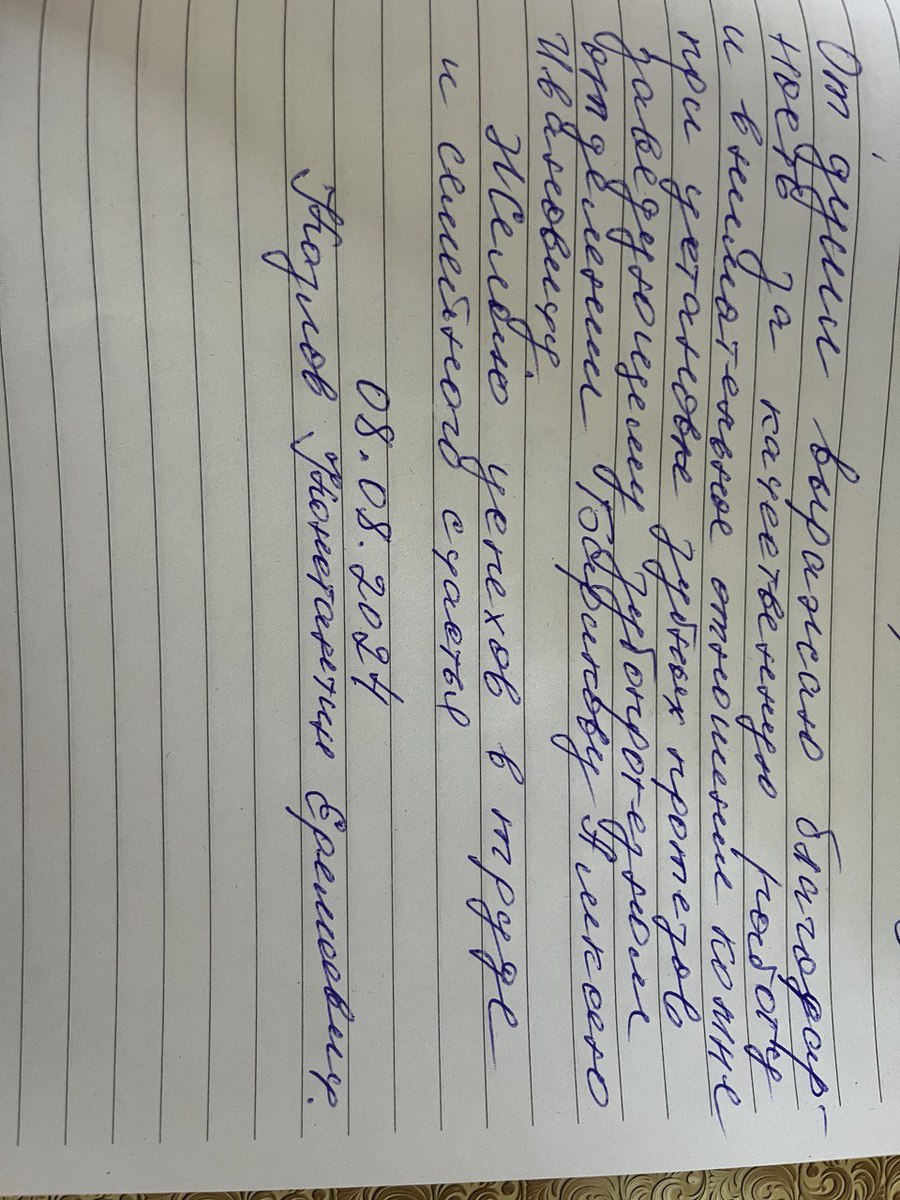 От души выражаю благодар-
ность за качественную работу
и внимательное отношение ко мне
при установке зубных протезов
заведующему зубопротезном
отделении Алексею
Ивановичу
Желаю успехов в труде
и семейного счастья
08.08.2024
Козлов Константин Еремеевич.